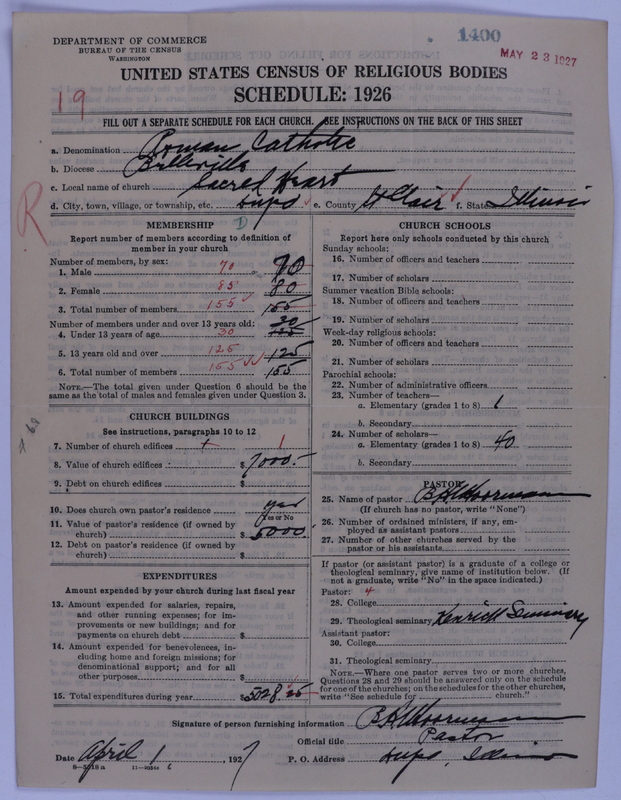 1400
MAY 23 1927
DEPARTMENT OF COMMERCE
BUREAU OF THE CENSUS
WASHINGTON
UNITED STATES CENSUS OF RELIGIOUS BODIES
SCHEDULE: 1926
19
FILL OUT A SEPARATE SCHEDULE FOR EACH CHURCH. SEE INSTRUCTIONS ON THE BACK OF THIS SHEET
a. Denomination Roman Catholic
b. Diocese Belleville
c. Local name of church Sacred Heart
d. City, town, village, or township, etc. Dupo e. County St Clair f. State Illinois
R
MEMBERSHIP
Report number of members according to definition of
member in your church
Number of members, by sex:
1. Male 70 70
2. Female 85 80
3. Total number of members 155 155
Number of members under and over 13 years old:
4. Under 13 years of age 30 30
5. 13 years old and over 125 125
6. Total number of members 155 155
NOTE.—The total given under Question 6 should be the
same as the total of males and females given under Question 3.
CHURCH BUILDINGS
See instructions, paragraphs 10 to 12
7. Number of church edifices 1
8. Value of church edifices $ 7000.-
9. Debt on church edifices $
10. Does church own pastor's residence yes
Yes or No
11. Value of pastor's residence (if owned by
church) $ 5000.
12. Debt on pastor's residence (if owned by
church) $
EXPENDITURES
Amount expended by your church during last fiscal year
13. Amount expended for salaries, repairs,
and other running expenses; for im-
provements or new buildings; and for
payments on church debt $
14. Amount expended for benevolences, in-
cluding home and foreign missions; for
denominational support; and for all
other purposes $
15. Total expenditures during year $
CHURCH SCHOOLS
Report here only schools conducted by this church
Sunday schools:
16. Number of officers and teachers
17. Number of scholars
Summer vacation Bible schools:
18. Number of officers and teachers
19. Number of scholars
Week-day religious schools:
20. Number of officers and teachers
21. Number of scholars
Parochial schools:
22. Number of administrative officers
23. Number of teachers—
a. Elementary (grades 1 to 8) 1
b. Secondary
24. Number of scholars—
a. Elementary (grades 1 to 8) 40
b. Secondary
PASTOR
25. Name of pastor B H Moorman
(If church has no pastor, write "None")
26. Number of ordained ministers, if any, em-
ployed as assistant pastors
27. Number of other churches served by the
pastor or his assistants
If pastor (or assistant pastor) is a graduate of a college or
theological seminary, give name of institution below. (If
not a graduate, write "No" in the space indicated.)
Pastor: 4
28. College
29. Theological seminary Kenrick Seminary
Assistant pastor:
30. College
31. Theological seminary
NOTE.—Where one pastor serves two or more churches,
Questions 28 and 29 should be answered only on the schedule
for one of the churches; on the schedules for the other churches,
write "See schedule for church."
Signature of person furnishing information B H Moorman
Official title Pastor
Date April 1, 1927 P. O. Address Dupo, Illinois